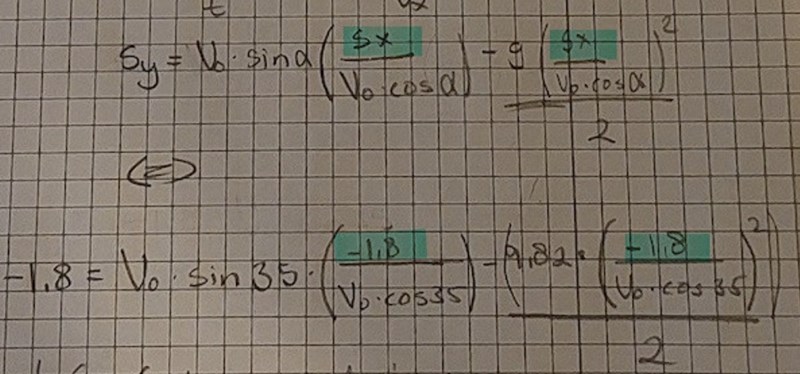 Sy = V₀·sinα(Sx / V₀·cosα) - g(Sx / V₀·cosα)² / 2
(⇔)
-1.8 = V₀·sin35·(-1,8 / V₀·cos35) - (9.82·(-1,8 / V₀·cos35)²) / 2